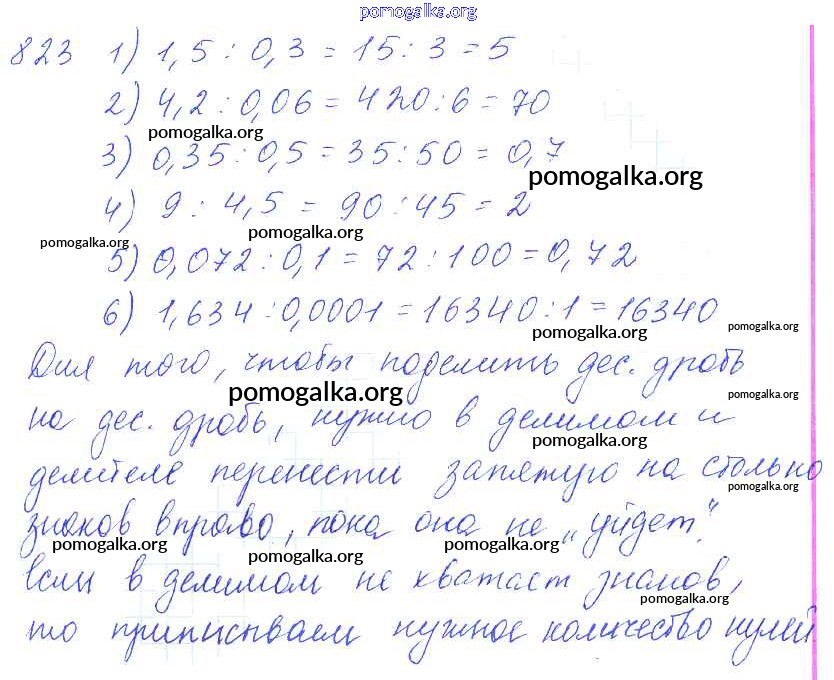 pomogalka.org
823 1) 1,5 : 0,3 = 15 : 3 = 5
2) 4,2 : 0,06 = 420 : 6 = 70
pomogalka.org
3) 0,35 : 0,5 = 35 : 50 = 0,7
pomogalka.org
4) 9 : 4,5 = 90 : 45 = 2
pomogalka.org
pomogalka.org
5) 0,072 : 0,1 = 72 : 100 = 0,72
6) 1,634 : 0,0001 = 16340 : 1 = 16340
pomogalka.org
pomogalka.org
Для того, чтобы поделить дес. дробь
pomogalka.org
pomogalka.org
на дес. дробь, нужно в делимом и
pomogalka.org
делителе перенести запятую на столько
pomogalka.org
знаков вправо, пока она не „уйдет".
pomogalka.org
pomogalka.org
pomogalka.org
если в делимом не хватает знаков,
pomogalka.org
то приписываем нужное количество нулей